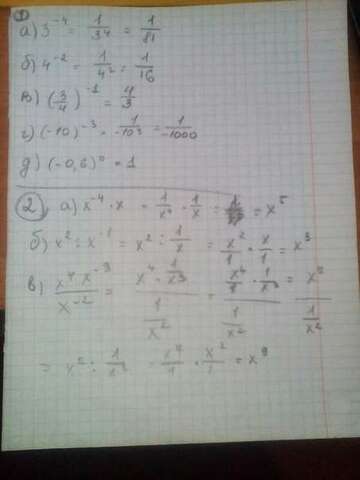 1
а) 3^-4 = 1/3^4 = 1/81
б) 4^-2 = 1/4^2 = 1/16
в) (3/4)^-1 = 4/3
г) (-10)^-3 = 1/-10^3 = 1/-1000
д) (-0,6)^0 = 1
2) а) x^-4 · x = 1/x^4 · 1/x = = x^5
б) x^2 : x^-1 = x^2 : 1/x = x^2/1 · x/1 = x^3
в) x^4 x^-3 / x^-2 = x^4 · 1/x^3 / 1/x^2 = x^4/1 · 1/x^3 / 1/x^2 = / 1/x^2
= : · x^2/1 =